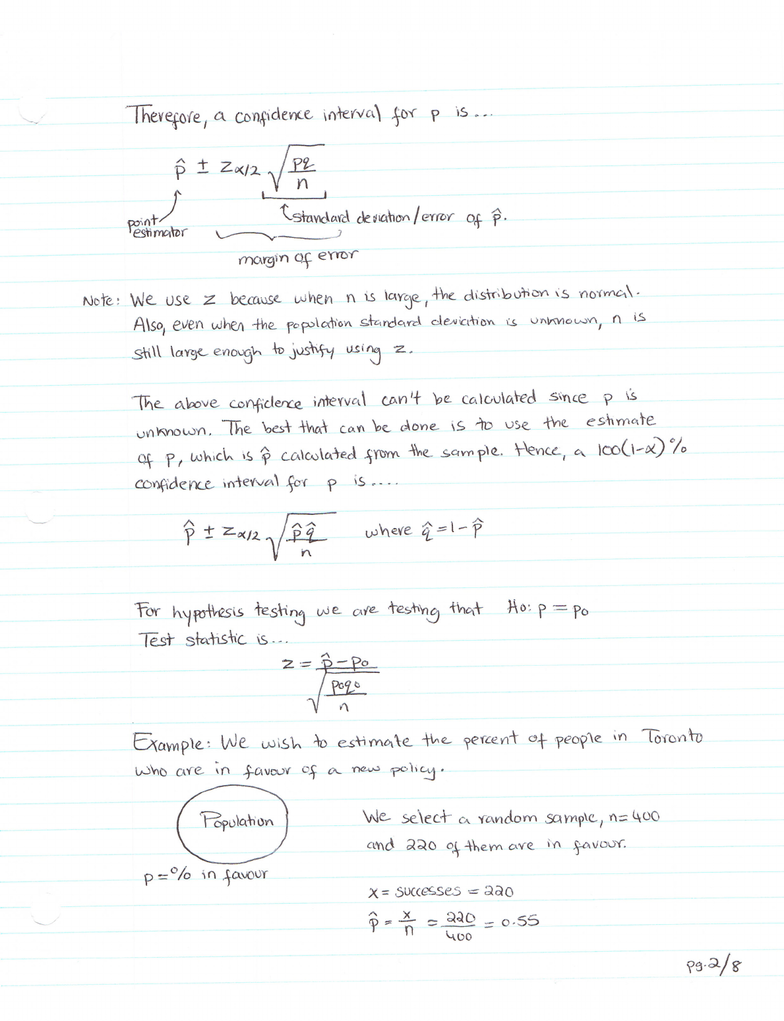 Therefore, a confidence interval for p is...
p̂ ± Zα/2 √(pq/n)
point estimator
standard deviation/error of p̂.
margin of error
Note: We use z because when n is large, the distribution is normal.
Also, even when the population standard deviation is unknown, n is
still large enough to justify using z.
The above confidence interval can't be calculated since p is
unknown. The best that can be done is to use the estimate
of p, which is p̂ calculated from the sample. Hence, a 100(1-α)%
confidence interval for p is....
p̂ ± Zα/2 √(p̂q̂/n) where q̂=1-p̂
For hypothesis testing we are testing that Ho: p = po
Test statistic is...
z = (p̂-po)/√(poqo/n)
Example: We wish to estimate the percent of people in Toronto
who are in favour of a new policy.
Population
p=% in favour
We select a random sample, n=400
and 220 of them are in favour.
x = successes = 220
p̂ = x/n = 220/400 = 0.55
pg.2/8